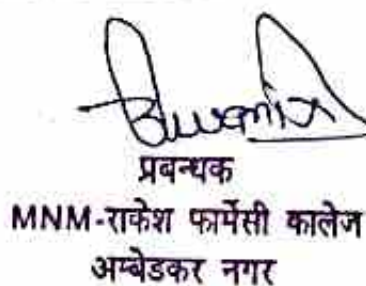 प्रबन्धक
MNM-राकेश फार्मेसी कालेज
अम्बेडकर नगर